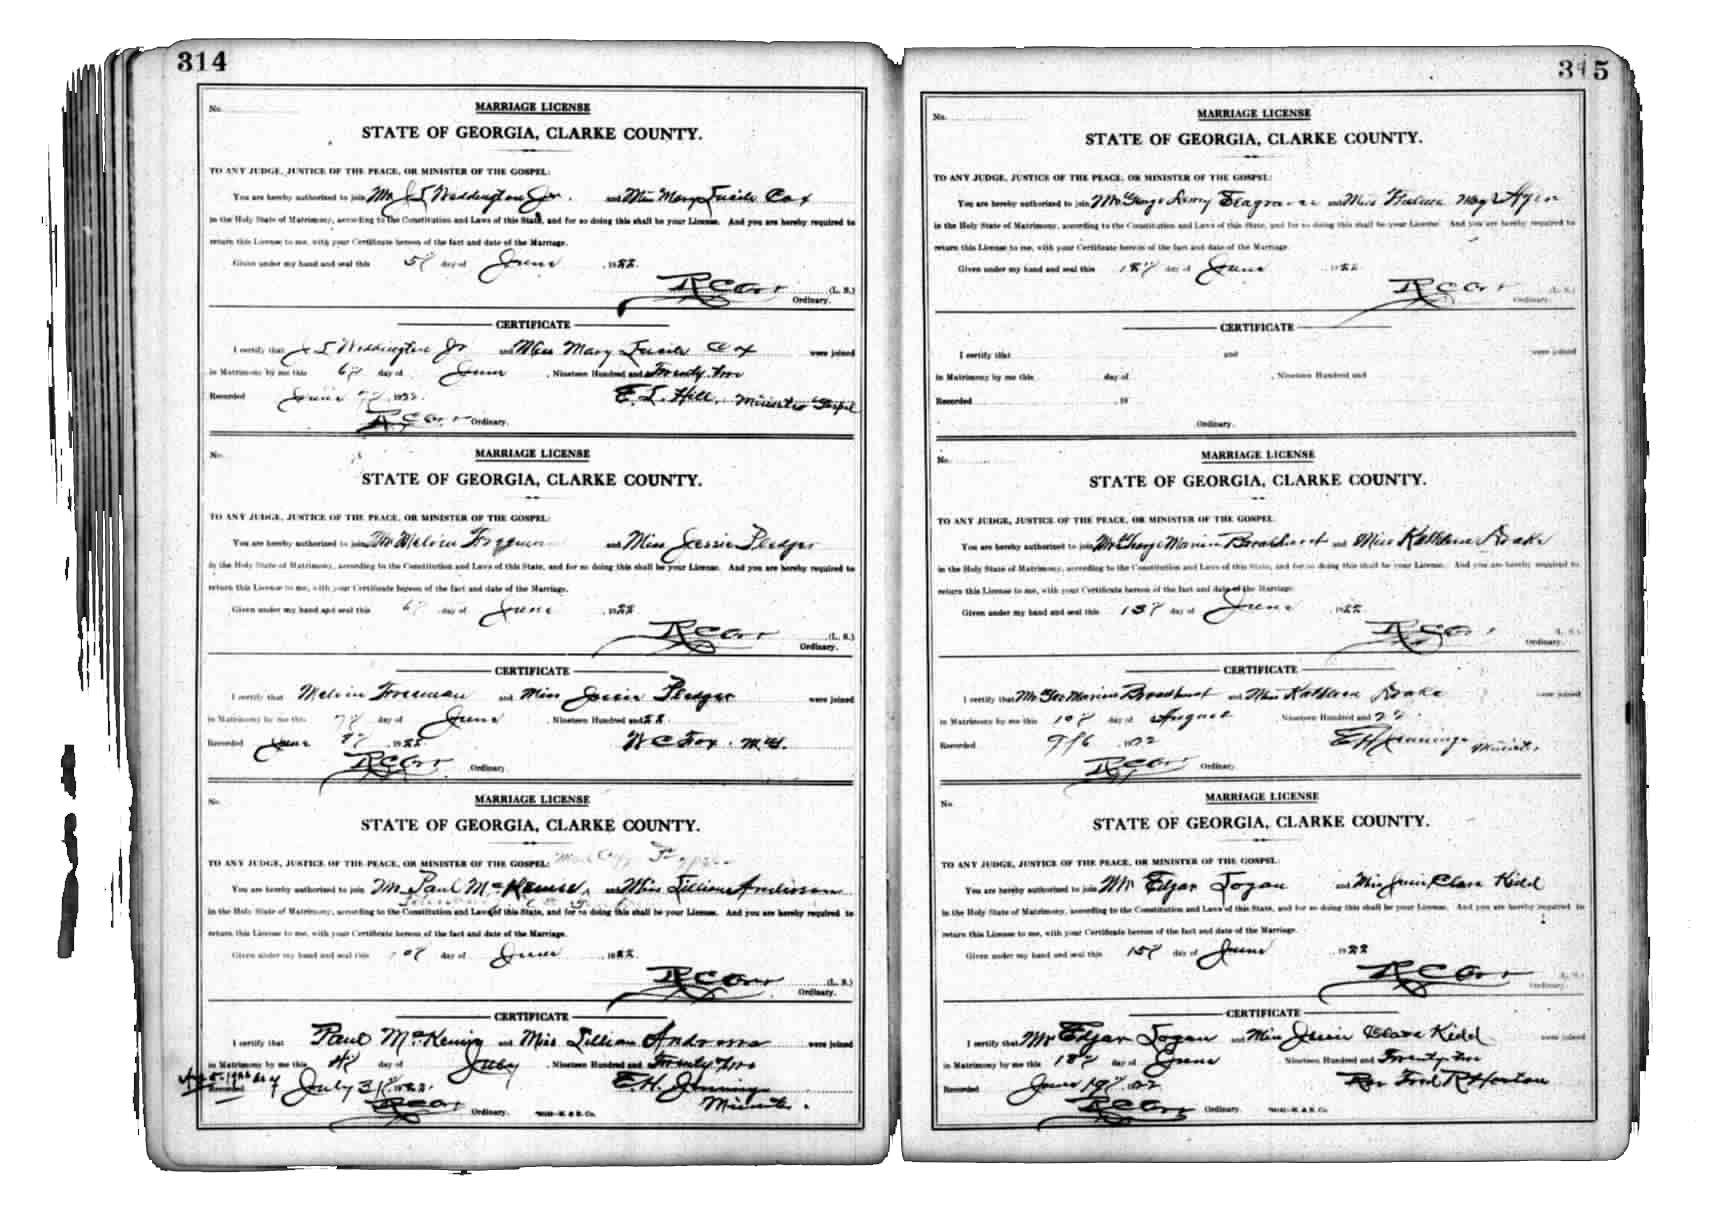 314
No.
MARRIAGE LICENSE
STATE OF GEORGIA, CLARKE COUNTY.
TO ANY JUDGE, JUSTICE OF THE PEACE, OR MINISTER OF THE GOSPEL:
You are hereby authorized to join Mr J L Waddington Jr. and Miss Mary Lucile Cox
in the Holy State of Matrimony, according to the Constitution and Laws of this State, and for so doing this shall be your License. And you are hereby required to
return this License to me, with your Certificate hereon of the fact and date of the Marriage.
Given under my hand and seal this 5th day of June , 1922
R C Orr (L. S.)
Ordinary.
CERTIFICATE
I certify that J L Waddington Jr and Miss Mary Lucile Cox were joined
in Matrimony by me this 6th day of June , Nineteen Hundred and Twenty two
Recorded June 7th , 1922. E. L. Hill, Minister Gospel
R C Orr Ordinary.
No.
MARRIAGE LICENSE
STATE OF GEORGIA, CLARKE COUNTY.
TO ANY JUDGE, JUSTICE OF THE PEACE, OR MINISTER OF THE GOSPEL:
You are hereby authorized to join Mr Melvin and Miss Jessie Pledger
in the Holy State of Matrimony, according to the Constitution and Laws of this State, and for so doing this shall be your License. And you are hereby required to
return this License to me, with your Certificate hereon of the fact and date of the Marriage.
Given under my hand and seal this 6th day of June , 1922
R C Orr (L. S.)
Ordinary.
CERTIFICATE
I certify that Melvin Freeman and Miss Jessie Pledger were joined
in Matrimony by me this 7th day of June , Nineteen Hundred and 22
Recorded June 9th 1922 W C Fox M.G.
R C Orr Ordinary.
No.
MARRIAGE LICENSE
STATE OF GEORGIA, CLARKE COUNTY.
TO ANY JUDGE, JUSTICE OF THE PEACE, OR MINISTER OF THE GOSPEL:
You are hereby authorized to join Mr Paul and Miss Lillian
in the Holy State of Matrimony, according to the Constitution and Laws of this State, and for so doing this shall be your License. And you are hereby required to
return this License to me, with your Certificate hereon of the fact and date of the Marriage.
Given under my hand and seal this day of June , 1922
R C Orr (L. S.)
Ordinary.
CERTIFICATE
I certify that Paul McKenny and Miss Lillian Andrews were joined
in Matrimony by me this 4th day of July , Nineteen Hundred and Twenty two
Recorded July 31st 1922. E. H. Jennings
Minister.
R C Orr Ordinary.
315
No.
MARRIAGE LICENSE
STATE OF GEORGIA, CLARKE COUNTY.
TO ANY JUDGE, JUSTICE OF THE PEACE, OR MINISTER OF THE GOSPEL:
You are hereby authorized to join Mr George Henry Seagraves and Miss May
in the Holy State of Matrimony, according to the Constitution and Laws of this State, and for so doing this shall be your License. And you are hereby required to
return this License to me, with your Certificate hereon of the fact and date of the Marriage.
Given under my hand and seal this day of June , 1922
R C Orr (L. S.)
Ordinary.
CERTIFICATE
I certify that and were joined
in Matrimony by me this day of , Nineteen Hundred and
Recorded , 19
Ordinary.
No.
MARRIAGE LICENSE
STATE OF GEORGIA, CLARKE COUNTY.
TO ANY JUDGE, JUSTICE OF THE PEACE, OR MINISTER OF THE GOSPEL:
You are hereby authorized to join Mr George Marion Broadhurst and Miss Kathleen Doake
in the Holy State of Matrimony, according to the Constitution and Laws of this State, and for so doing this shall be your License. And you are hereby required to
return this License to me, with your Certificate hereon of the fact and date of the Marriage.
Given under my hand and seal this 13th day of June , 1922
R C Orr (L. S.)
Ordinary.
CERTIFICATE
I certify that Mr Geo Marion Broadhurst and Miss Kathleen Doake were joined
in Matrimony by me this 10th day of August , Nineteen Hundred and 22.
Recorded 9/6 1922 E H Jennings Minister
R C Orr Ordinary.
No.
MARRIAGE LICENSE
STATE OF GEORGIA, CLARKE COUNTY.
TO ANY JUDGE, JUSTICE OF THE PEACE, OR MINISTER OF THE GOSPEL:
You are hereby authorized to join Mr Edgar Logan and Miss Jessie Clara Kidd
in the Holy State of Matrimony, according to the Constitution and Laws of this State, and for so doing this shall be your License. And you are hereby required to
return this License to me, with your Certificate hereon of the fact and date of the Marriage.
Given under my hand and seal this 15th day of June 1922
R C Orr (L. S.)
Ordinary.
CERTIFICATE
I certify that Mr Edgar Logan and Miss Jessie Clara Kidd were joined
in Matrimony by me this 18th day of June Nineteen Hundred and Twenty two
Recorded June 19th 1922 Rev Ford R Horton
R C Orr Ordinary.